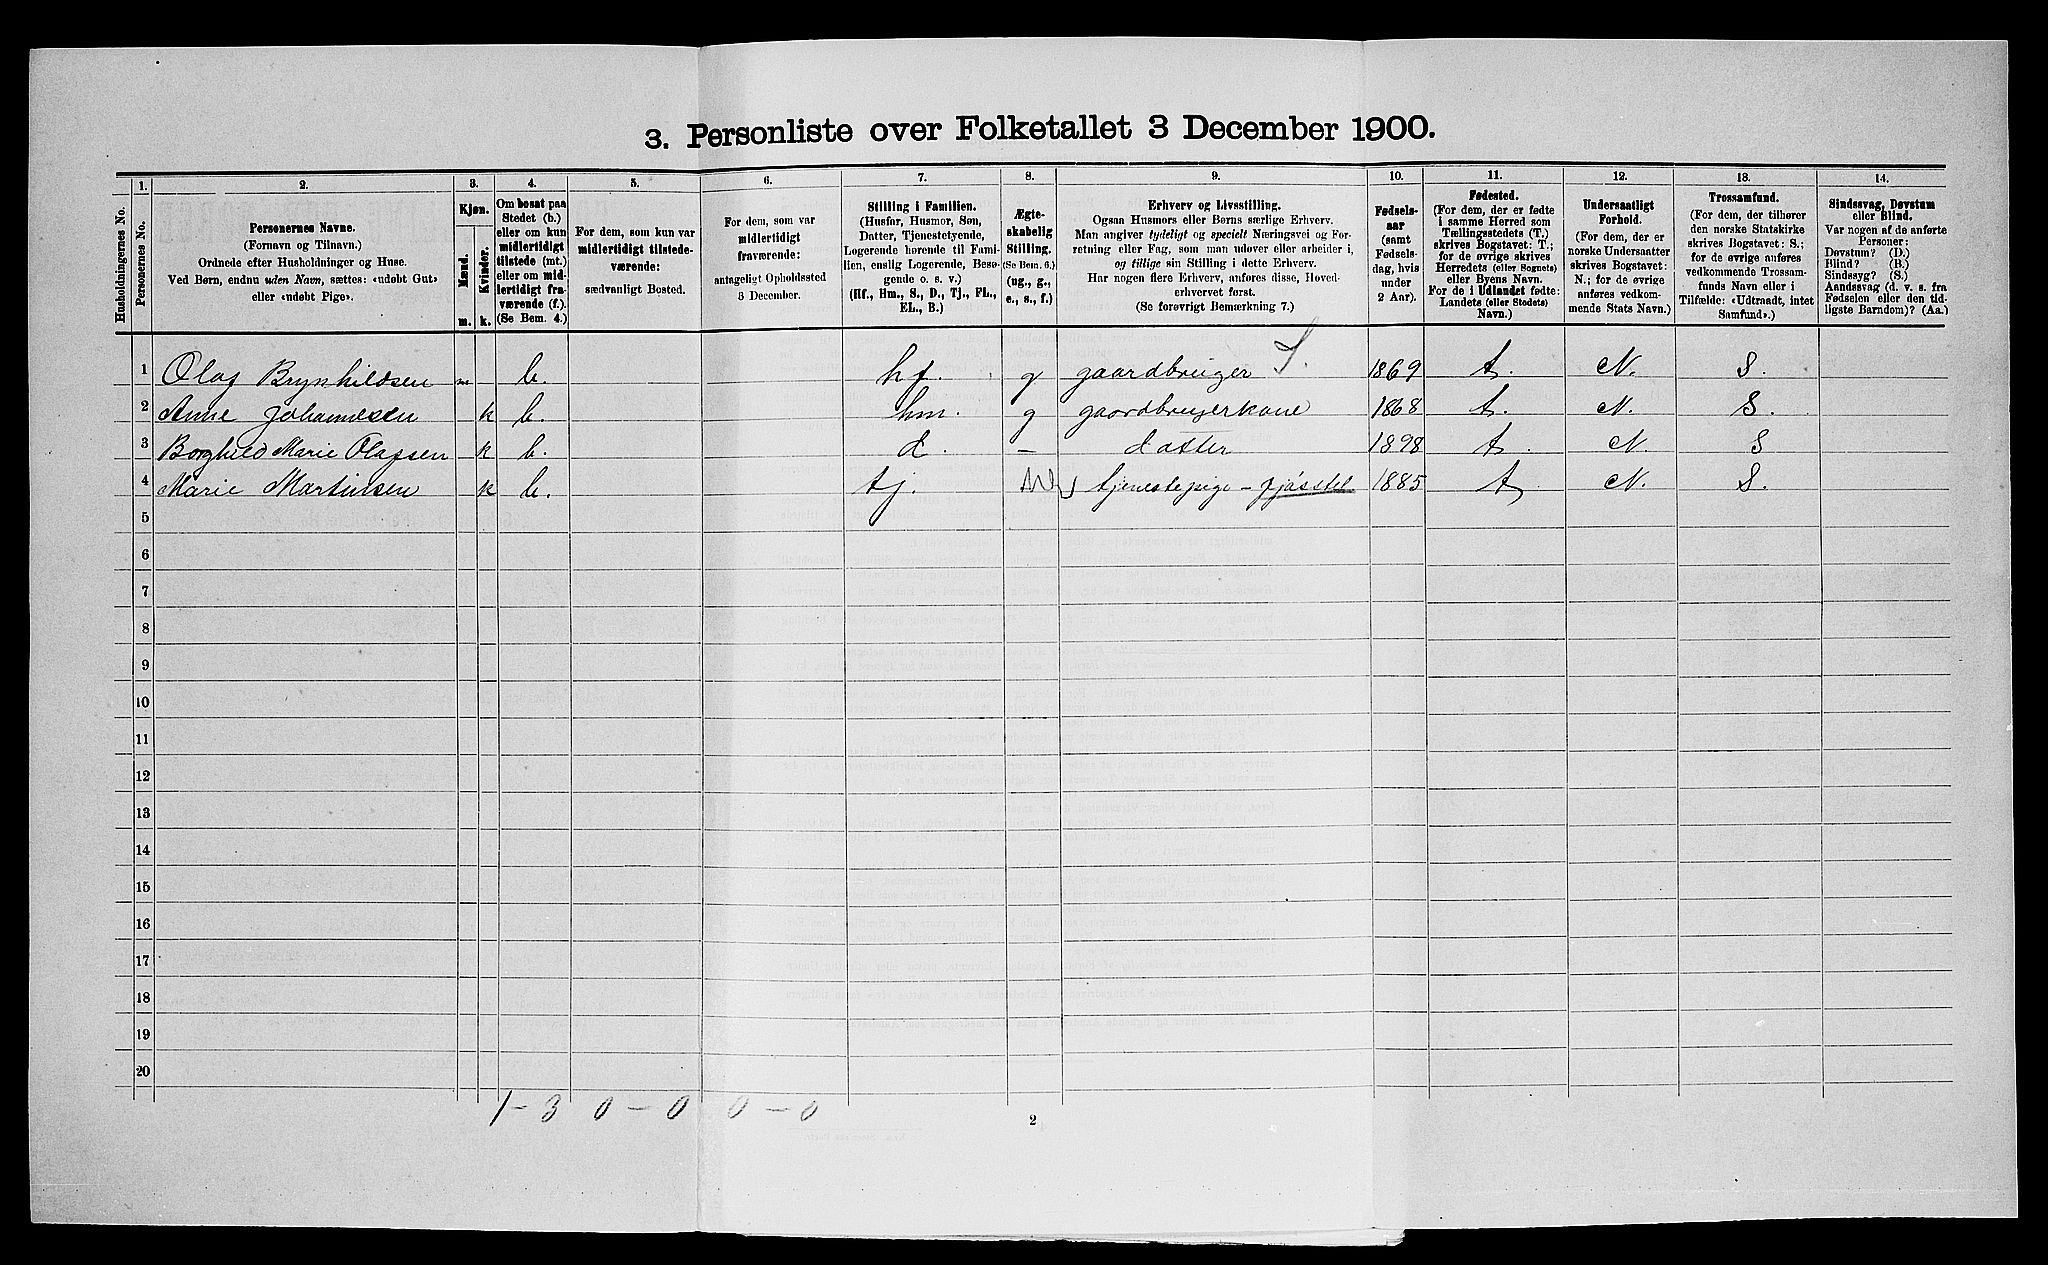 3. Personliste over Folketallet 3 December 1900.
1. 2. 3. 4. 5. 6. 7. 8. 9. 10. 11. 12. 13. 14.
Husholdningernes No.
Personernes No.
Personernes Navne.
(Fornavn og Tilnavn.)
Ordnede efter Husholdninger og Huse.
Ved Børn, endnu uden Navn, sættes: «udøbt Gut»
eller «udøbt Pige».
Kjøn.
Mænd.
Kvinder.
m. k.
Om bosat paa
Stedet (b.)
eller om kun
midlertidigt
tilstede (mt.)
eller om mid-
lertidigt fra-
værende (f.).
(Se Bem. 4.)
For dem, som kun var
midlertidigt tilstede-
værende:
sædvanligt Bosted.
For dem, som var
midlertidigt
fraværende:
antageligt Opholdssted
3 December.
Stilling i Familien.
(Husfar, Husmor, Søn,
Datter, Tjenestetyende,
Logerende hørende til Fami-
lien, enslig Logerende, Besø-
gende o. s. v.)
(Hf., Hm., S., D., Tj., FL.,
EL., B.)
Ægte-
skabelig
Stilling.
(Se Bem. 6.)
(ug., g.,
e., s., f.)
Erhverv og Livsstilling.
Ogsaa Husmors eller Børns særlige Erhverv.
Man angiver tydeligt og specielt Næringsvei og For-
retning eller Fag, som man udøver eller arbeider i,
og tillige sin Stilling i dette Erhverv.
Har nogen flere Erhverv, anføres disse, Hoved-
erhvervet først.
(Se forøvrigt Bemærkning 7.)
Fødsels-
aar
(samt
Fødsels-
dag, hvis
under
2 Aar).
Fødested.
(For dem, der er fødte
i samme Herred som
Tællingsstedets (T.)
skrives Bogstavet: T.;
for de øvrige skrives
Herredets (eller Sognets)
eller Byens Navn.
For de i Udlandet fødte:
Landets (eller Stedets)
Navn.)
Undersaatligt
Forhold.
(For dem, der er
norske Undersaatter
skrives Bogstavet:
N.; for de øvrige
anføres vedkom-
mende Stats Navn.)
Trossamfund.
(For dem, der tilhører
den norske Statskirke
skrives Bogstavet: S.;
for de øvrige anføres
vedkommende Trossam-
funds Navn eller i
Tilfælde: «Udtraadt, intet
Samfund».)
Sindssvag, Døvstum
eller Blind.
Var nogen af de anførte
Personer:
Døvstum? (D.)
Blind? (B.)
Sindssyg? (S.)
Aandssvag (d. v. s. fra
Fødselen eller den tid-
ligste Barndom)? (Aa.)
1 Olaf Brynhildsen m b. hf. g gaardbruger S. 1869 t. N. S.
2 Anne Johannesen k b. hm. g gaardbrugerkone 1868 t. N. S.
3 Borghild Marie Olafsen k b. d. – datter 1898 t. N. S
4 Marie Martinsen k b. tj. tjenestepige – fjøsstel 1885 t. N. S.
5
6
7
8
9
10
11
12
13
14
15
16
17
18
19
20
1 – 3 0 – 0 0 – 0
2